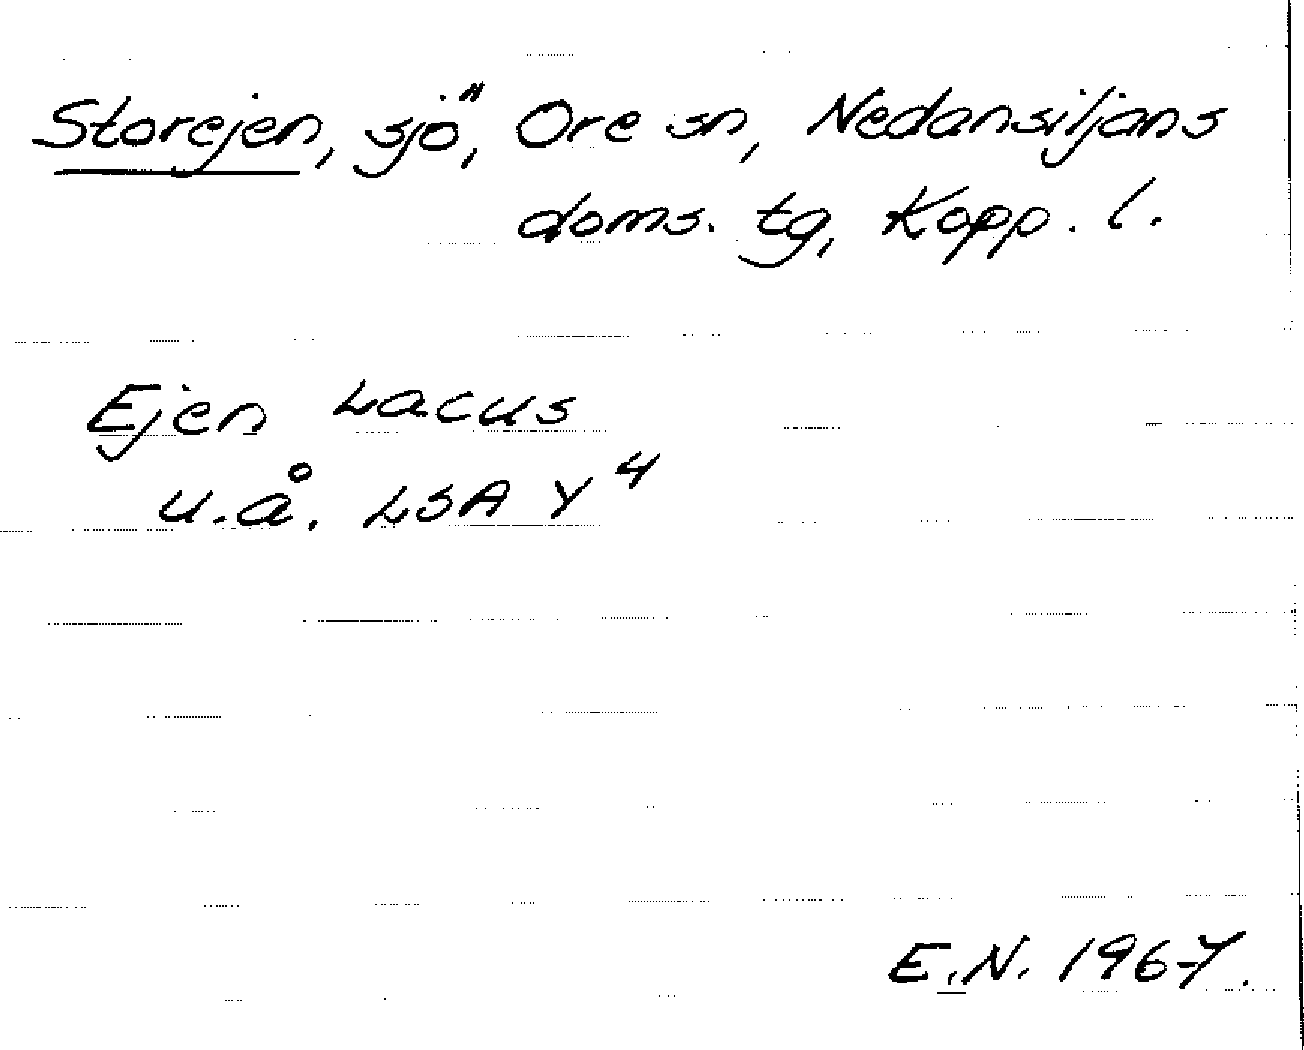 Storejen, sjö, Ore sn, Nedansiljans
doms. tg, Kopp. l.
Ejen Lacus
u.å. LSA Y⁴
E.N. 1967.